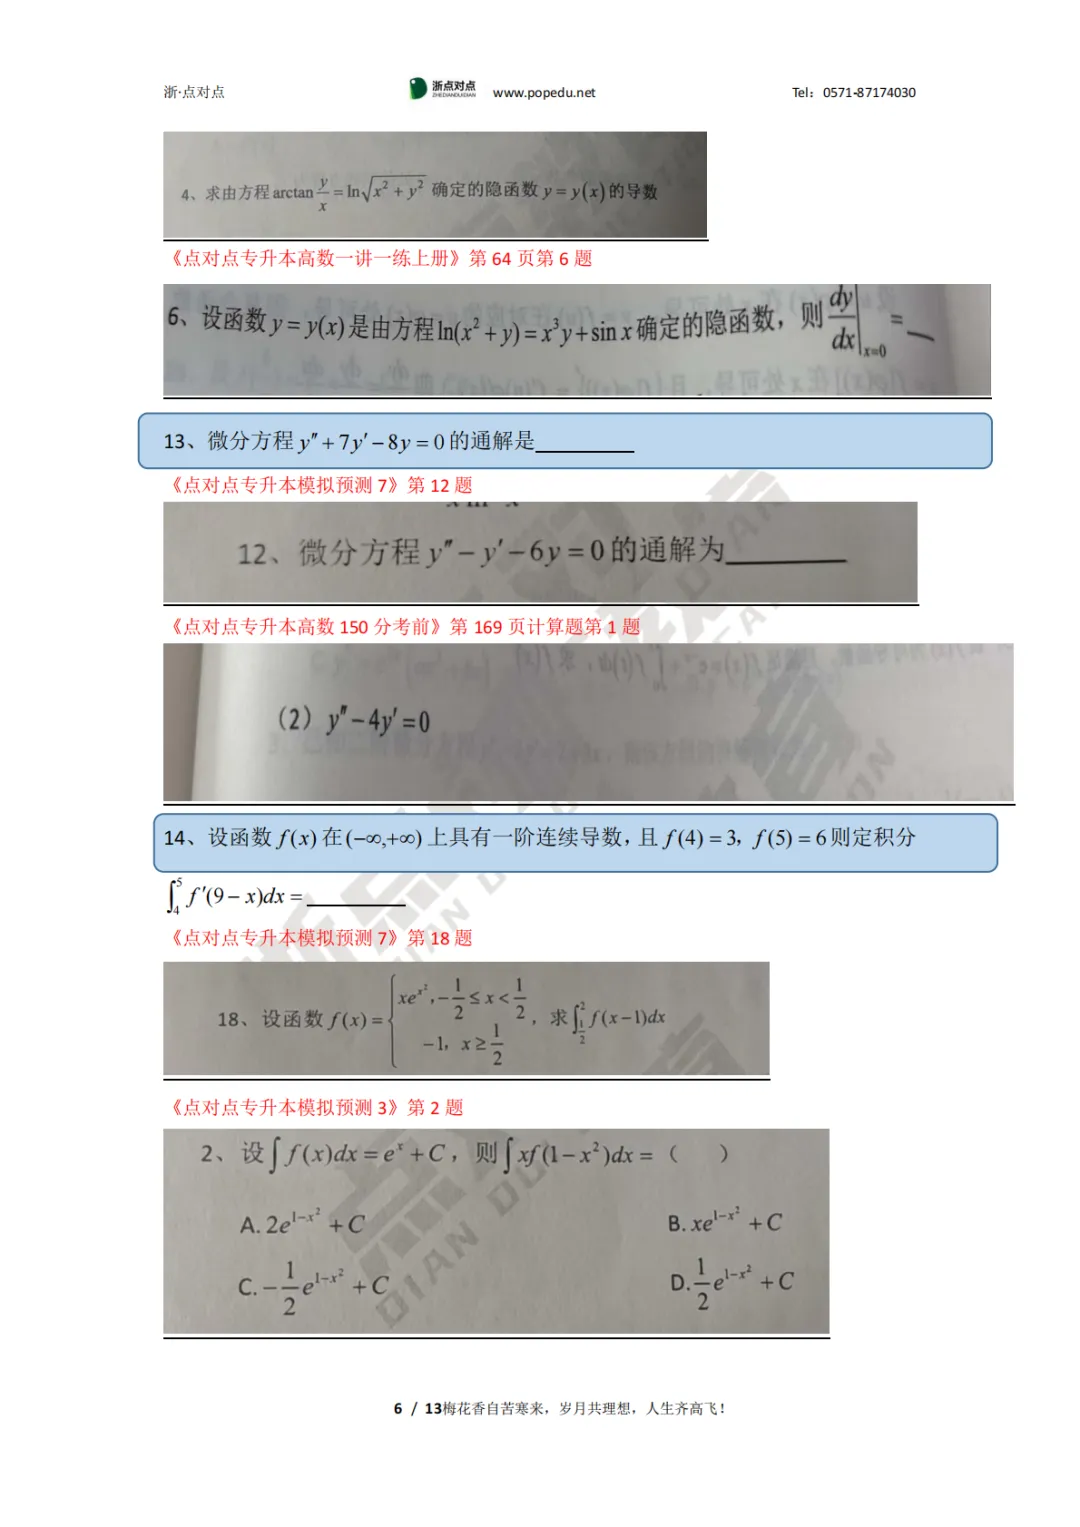 浙·点对点 浙点对点 ZHEDIANDUIDIAN www.popedu.net Tel：0571-87174030
4、求由方程 arctan y/x = ln√(x² + y²) 确定的隐函数 y = y(x) 的导数
《点对点专升本高数一讲一练上册》第 64 页第 6 题
6、设函数 y = y(x) 是由方程 ln(x² + y) = x³y + sin x 确定的隐函数，则 dy/dx|x=0 = __
13、微分方程 y″ + 7y′ − 8y = 0 的通解是________
《点对点专升本模拟预测 7》第 12 题
12、微分方程 y″ − y′ − 6y = 0 的通解为________
《点对点专升本高数 150 分考前》第 169 页计算题第 1 题
（2）y″ − 4y′ = 0
14、设函数 f(x) 在 (−∞,+∞) 上具有一阶连续导数，且 f(4) = 3，f(5) = 6 则定积分
∫₄⁵ f′(9 − x)dx = ________
《点对点专升本模拟预测 7》第 18 题
18、设函数 f(x) = { xe^(x²), −1/2 ≤ x < 1/2 ; −1, x ≥ 1/2 ，求 ∫_(1/2)^2 f(x−1)dx
《点对点专升本模拟预测 3》第 2 题
2、设 ∫ f(x)dx = e^x + C，则 ∫ xf(1 − x²)dx =（ ）
A. 2e^(1−x²) + C B. xe^(1−x²) + C
C. −1/2 e^(1−x²) + C D. 1/2 e^(1−x²) + C
6 / 13梅花香自苦寒来，岁月共理想，人生齐高飞！